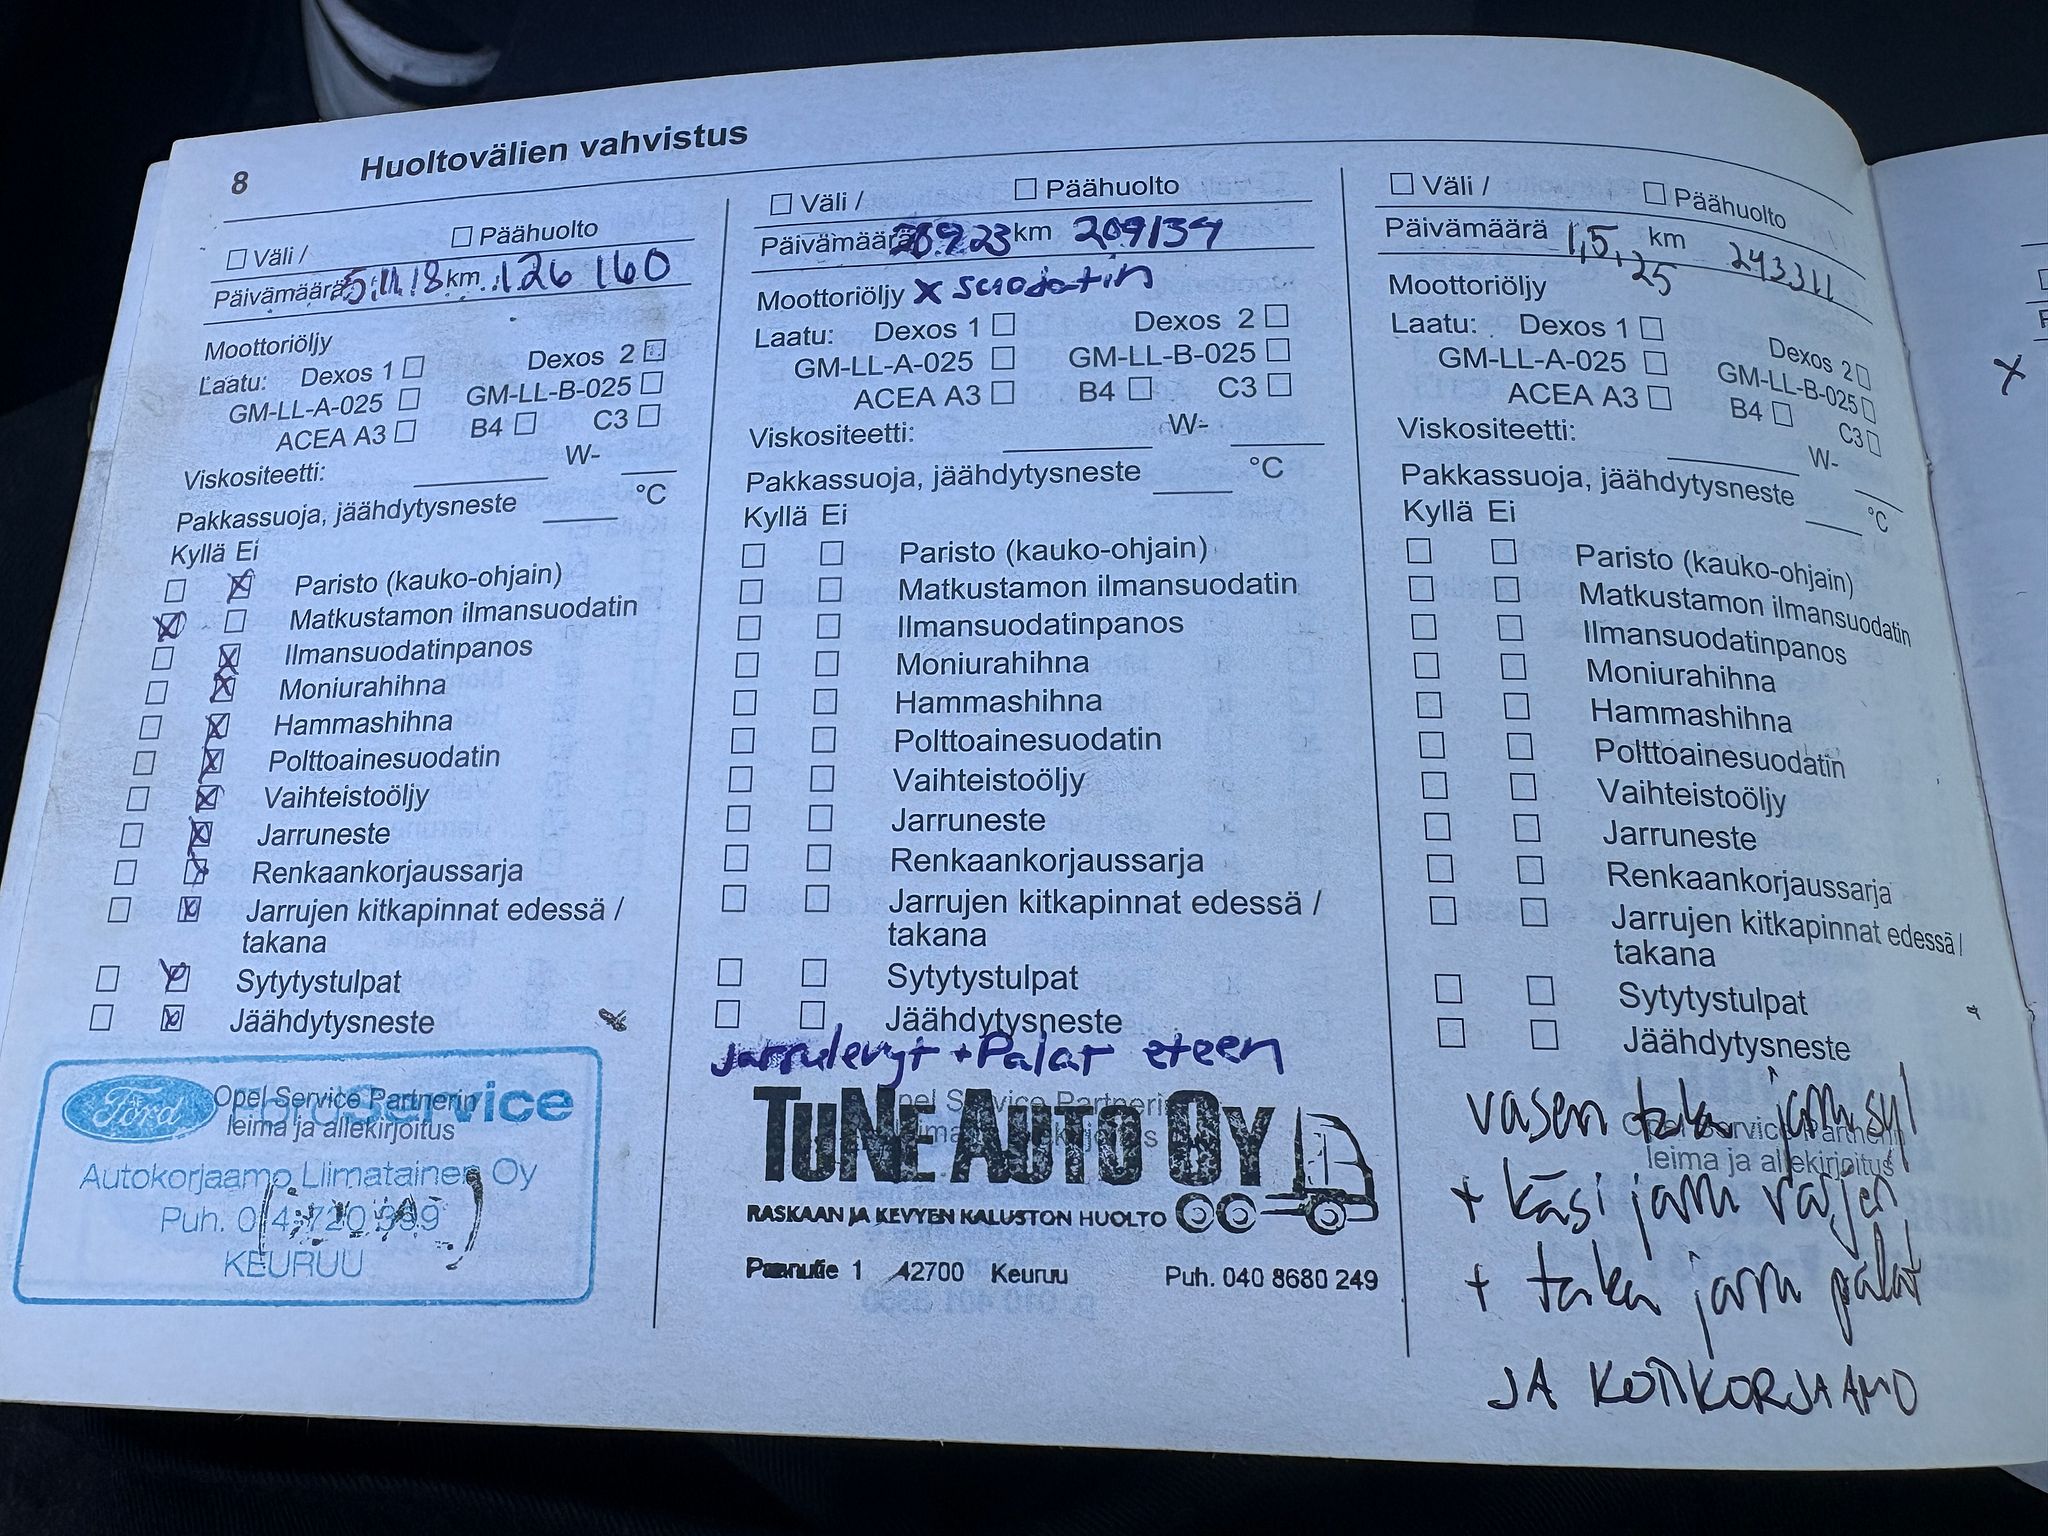 8 Huoltovälien vahvistus
Väli / Päähuolto
Päivämäärä 5.11.18 km 126 160
Moottoriöljy
Laatu: Dexos 1 Dexos 2
GM-LL-A-025 GM-LL-B-025
ACEA A3 B4 C3
Viskositeetti: W-
Pakkassuoja, jäähdytysneste °C
Kyllä Ei
Paristo (kauko-ohjain)
Matkustamon ilmansuodatin
Ilmansuodatinpanos
Moniurahihna
Hammashihna
Polttoainesuodatin
Vaihteistoöljy
Jarruneste
Renkaankorjaussarja
Jarrujen kitkapinnat edessä /
takana
Sytytystulpat
Jäähdytysneste
Opel Service Partnerin
leima ja allekirjoitus
Ford Service
Autokorjaamo Liimatainen Oy
Puh. 014-720 399
KEURUU
Väli / Päähuolto
Päivämäärä 23 km 209134
Moottoriöljy x suodatin
Laatu: Dexos 1 Dexos 2
GM-LL-A-025 GM-LL-B-025
ACEA A3 B4 C3
Viskositeetti: W-
Pakkassuoja, jäähdytysneste °C
Kyllä Ei
Paristo (kauko-ohjain)
Matkustamon ilmansuodatin
Ilmansuodatinpanos
Moniurahihna
Hammashihna
Polttoainesuodatin
Vaihteistoöljy
Jarruneste
Renkaankorjaussarja
Jarrujen kitkapinnat edessä /
takana
Sytytystulpat
Jäähdytysneste
Jarrulevyt + Palat eteen
TUNE AUTO OY
RASKAAN JA KEVYEN KALUSTON HUOLTO
1 42700 Keuruu Puh. 040 8680 249
Väli / Päähuolto
Päivämäärä 1,5,25 km 243311
Moottoriöljy
Laatu: Dexos 1 Dexos 2
GM-LL-A-025 GM-LL-B-025
ACEA A3 B4 C3
Viskositeetti: W-
Pakkassuoja, jäähdytysneste °C
Kyllä Ei
Paristo (kauko-ohjain)
Matkustamon ilmansuodatin
Ilmansuodatinpanos
Moniurahihna
Hammashihna
Polttoainesuodatin
Vaihteistoöljy
Jarruneste
Renkaankorjaussarja
Jarrujen kitkapinnat edessä /
takana
Sytytystulpat
Jäähdytysneste
Opel Service Partnerin
leima ja allekirjoitus
vasen taka jarrusyl
+ käsijarru vaijeri
+ taka jarru palat
JA KOTIKORJAAMO
x